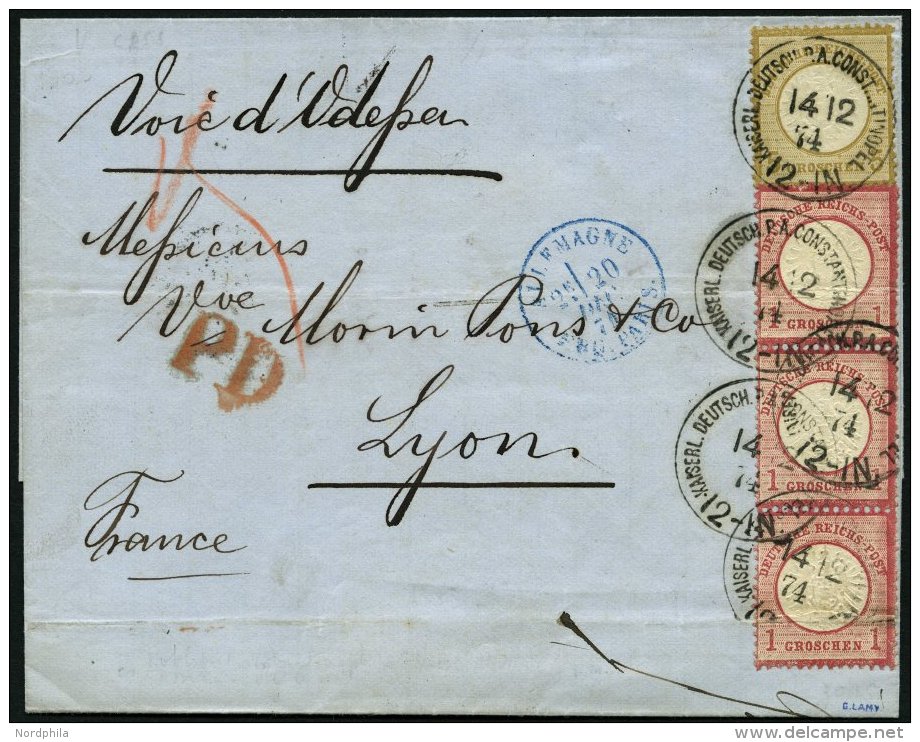 Voie d'Odessa
Messieurs
Vve Morin Pons & Co
Lyon
France
PD
ALLEMAGNE
20
KAISERL. DEUTSCH. P.A. CONSTANTINOPEL
14 12
74
12-1N
GROSCHEN
KAISERL. DEUTSCH. P.A. CONSTANTINOPEL
14 12
74
12-1N
DEUTSCHE REICHS-POST
1 GROSCHEN 1
14 12
74
12-1N
DEUTSCHE REICHS-POST
1 GROSCHEN 1
KAISERL. DEUTSCH. P.A.
14
74
12-1N
DEUTSCHE REICHS-POST
KAISERL.
14 12
74
1 GROSCHEN 1
E. LAMY
Nordphila
delcampe.net